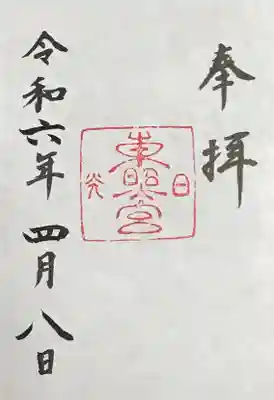 奉拝
日光
東照宮
令和六年 四月八日